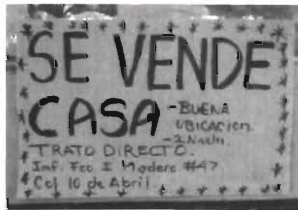 SE VENDE
CASA -BUENA
UBICACION.
TRATO DIRECTO.
Inf. Fco I Madero #47
Col 10 de Abril.